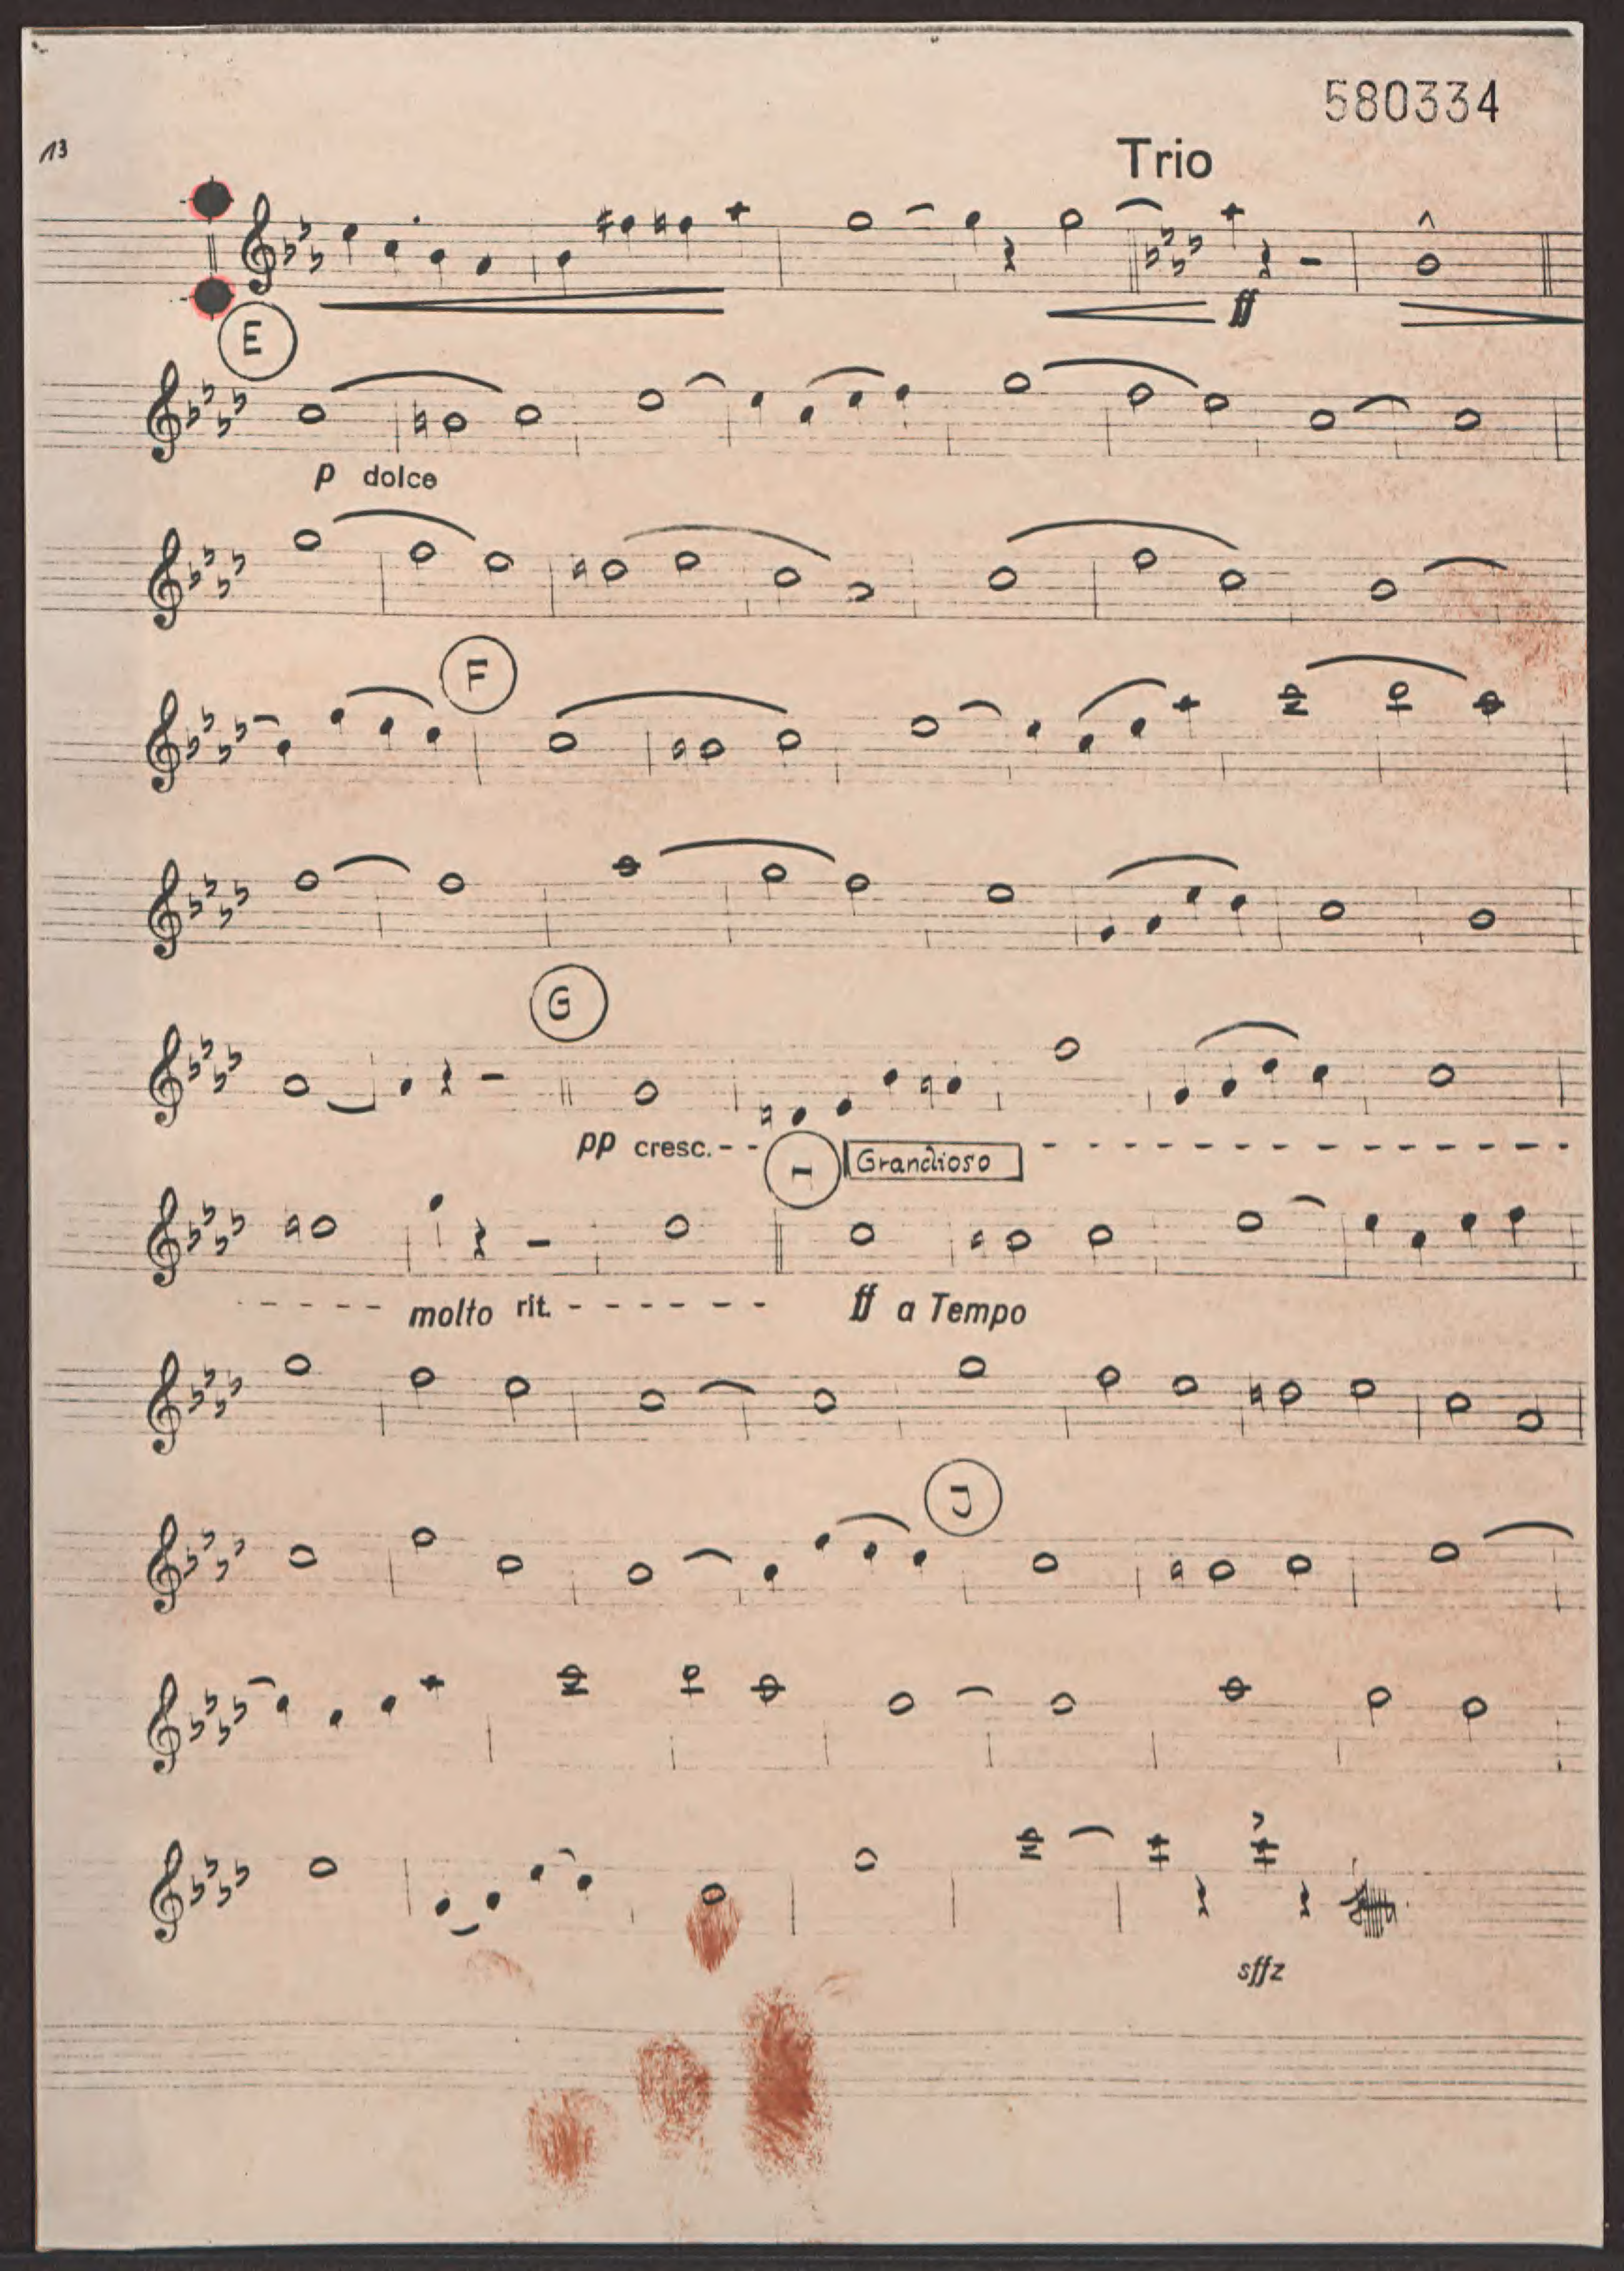 580334
13
Trio
ff
E
p dolce
F
G
pp cresc.
I Grandioso
molto rit. ff a Tempo
J
sffz